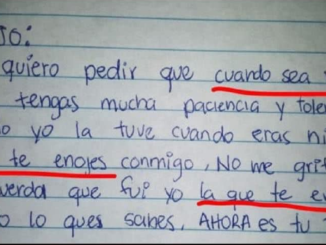 JO:
quiero pedir que cuando sea
tengas mucha paciencia y tole
o yo la tuve cuando eras ni
te enojes conmigo, NO me grit
uerda que fui yo la que te e
o lo ques sabes, AHORA es tu